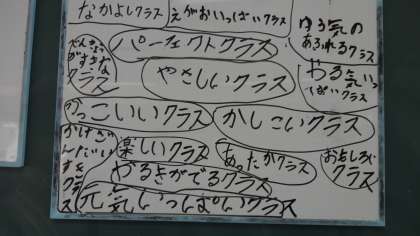 なかよしクラス
えがおいっぱいクラス
ゆう気の
あふれるクラス
べんきょう
がすきな
クラス
パーフェクトクラス
やさしいクラス
やる気いっ
ぱいクラス
かっこいいクラス
かしこいクラス
楽しいクラス
あったかクラス
おもしろい
クラス
やるきがでるクラス
元気いっぱいクラス